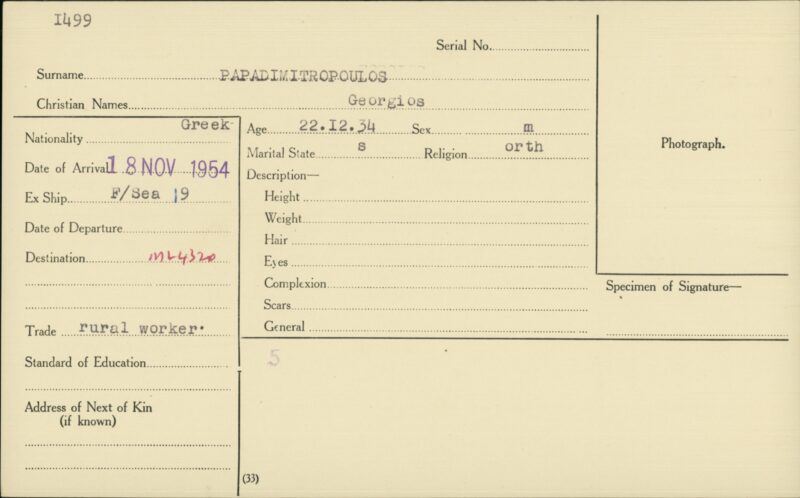 I499
Serial No.
Surname PAPADIMITROPOULOS
Christian Names Georgios
Nationality Greek
Date of Arrival 18 NOV 1954
Ex Ship F/Sea 19
Date of Departure
Destination ML4320
Trade rural worker.
Standard of Education
Address of Next of Kin
(if known)
Age 22.I2.34 Sex m
Marital State s Religion orth
Description—
Height
Weight
Hair
Eyes
Complexion
Scars
General
5
(33)
Photograph.
Specimen of Signature—